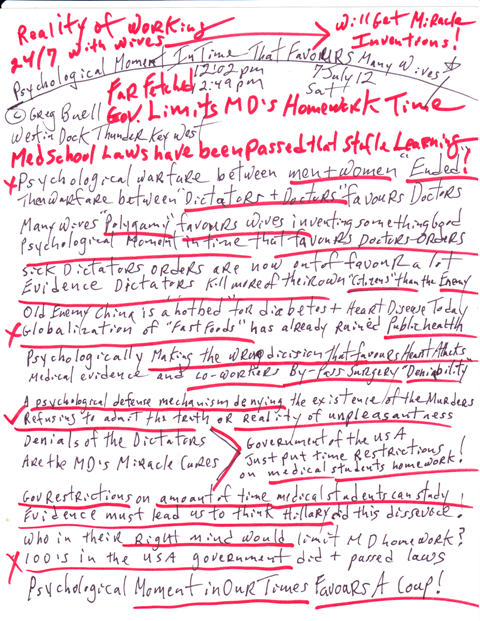 Reality of Working
24/7 with wives
Will Get Miracle
Inventions!
Psychological Moment In Time That Favours Many Wives
Far Fetched
12:02 pm
12:49 pm
7 July 12
Sat
© Greg Buell
West in Dock Thunder Key West
Gov. Limits MD's Homework Time
Med School Laws have been passed that stifle Learning?
Psychological warfare between men + women "Ended!"
The warfare between "Dictators + Doctors" favours Doctors
Many Wives "Polygamy" favours wives inventing something good
Psychological Moment in time that favours Doctors-orders
Sick Dictators orders are now out of favour a lot
Evidence Dictators kill more of their own "citizens" than the Enemy
Old Enemy China is a hotbed for diabetes + Heart Disease Today
Globalization of "Fast Foods" has already rained Public health
Psychologically Making the wrong dicision that favours Heart Attacks
Medical evidence and co-workers By-Pass Surgery "Deniability"
A psychological defense mechanism denying the existence of the Murders
Refusing to admit the truth or reality of unpleasantness
Denials of the Dictators
Are the MD's Miracle Cures
Government of the USA
Just put time Restrictions
on medical students homework!
Gov Restrictions on amount of time medical students can study!
Evidence must lead us to think Hillary did this disservice!
Who in their Right mind would limit MD homework?
100's in the USA government did + passed laws
Psychological Moment in Our Times Favours A Coup!